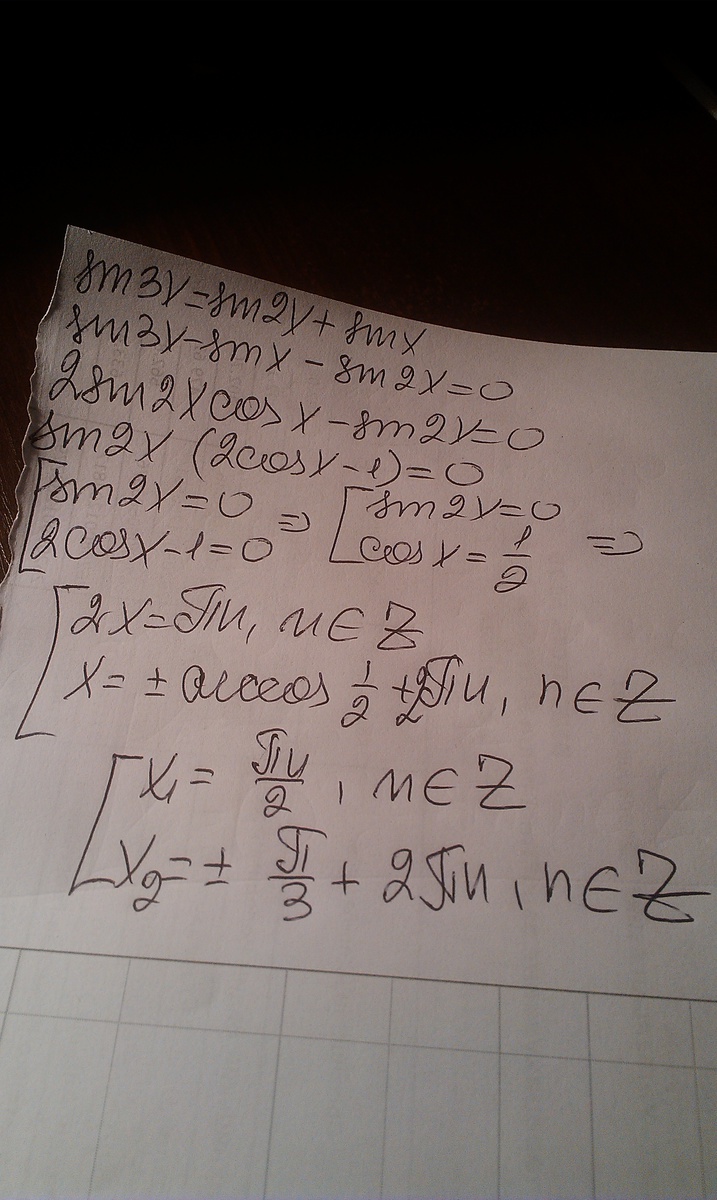 sin3x=sin2x+sinx
sin3x-sinx-sin2x=0
2sin2xcosx-sin2x=0
sin2x(2cosx-1)=0
[sin2x=0 => [sin2x=0 =>
2cosx-1=0 cosx=1/2
[2x=πn, n∈Z
x=±arccos 1/2+2πn, n∈Z
[x₁=πn/2, n∈Z
x₂=±π/3+2πn, n∈Z